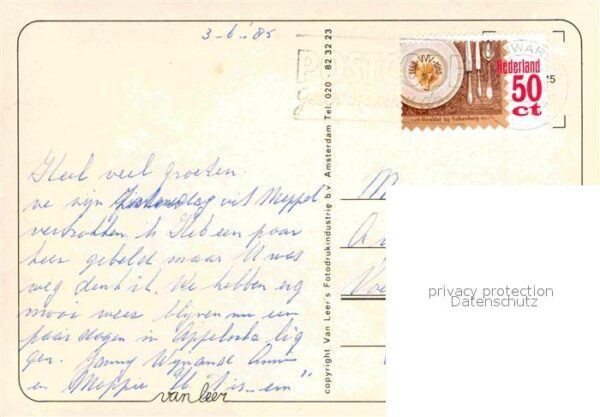 3-6-'85
POST
WAR
Nederland
50
ct
Geuldal bij Valkenburg
Heel veel groeten
we zijn Zaterdag uit Meppel
vertrokken. Ik Heb een paar
keer gebeld maar U was
weg denk ik. We hebben erg
mooi weer blijven nu een
paar dagen in Appelscha lig
gen. Janny Wijnand
en Moppie
van Leer
copyright Van Leer's Fotodrukindustrie b.v. Amsterdam Tel. 020 - 82 32 23
M
A
Vo
privacy protection
Datenschutz